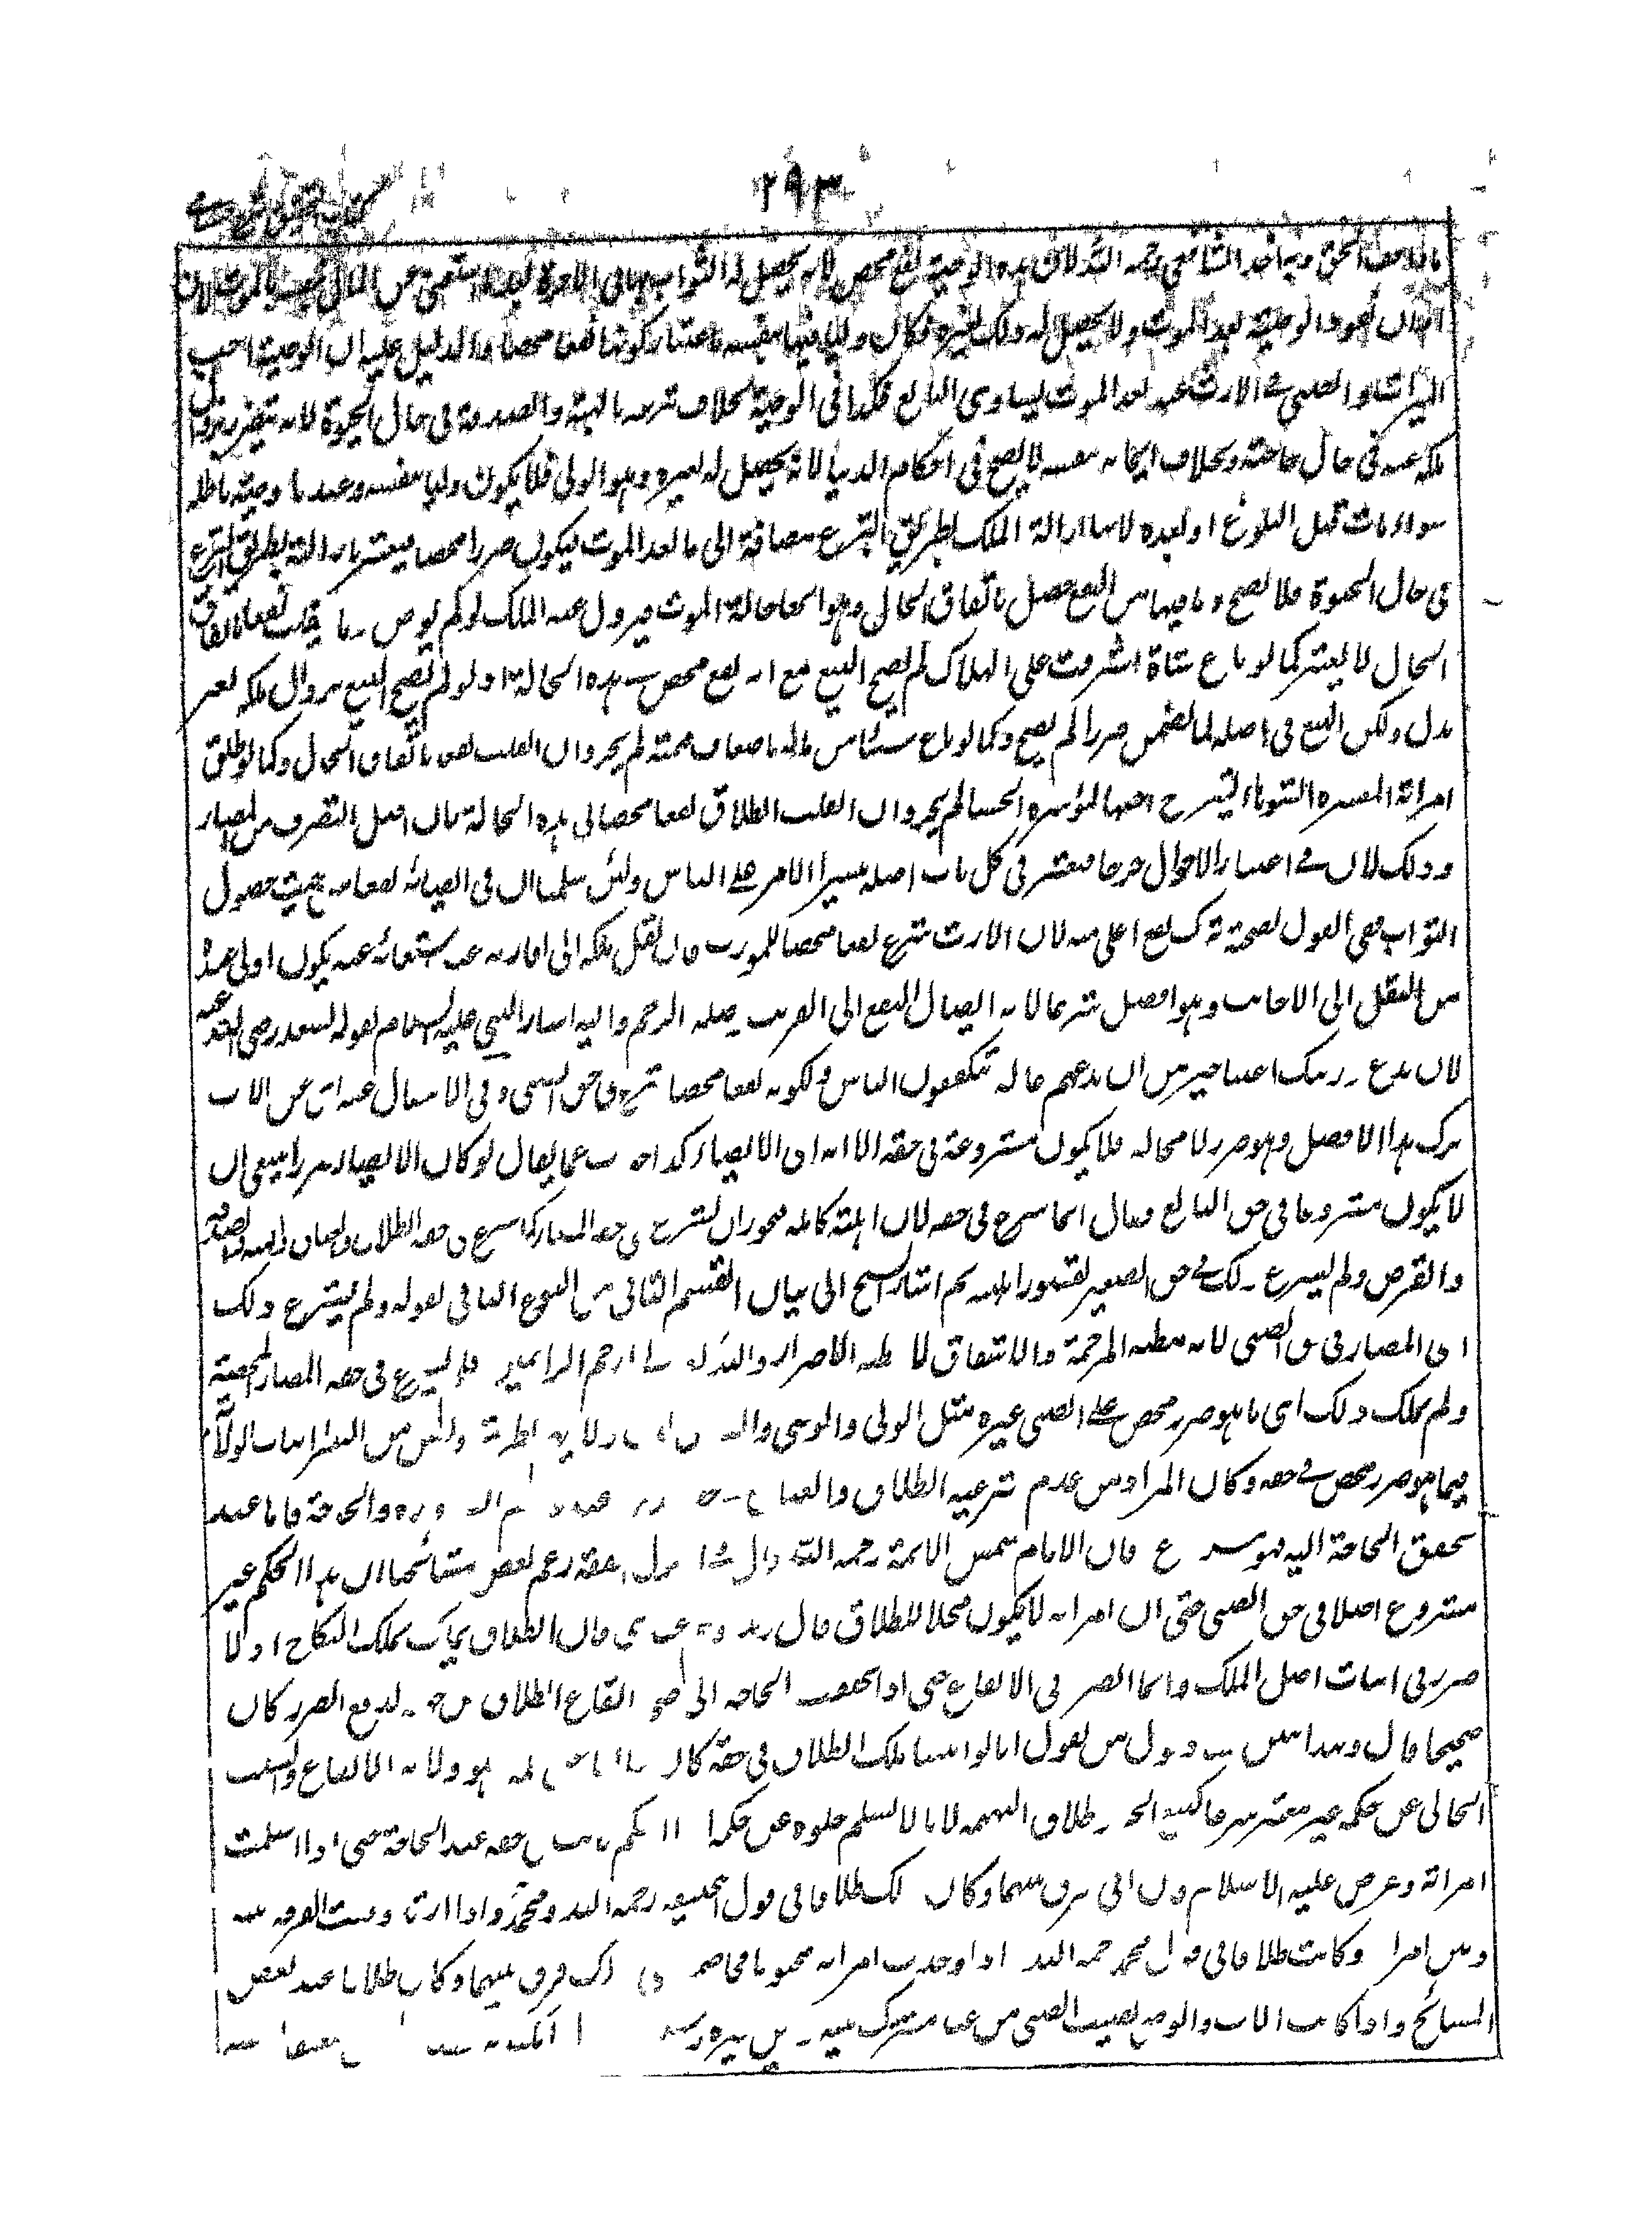 ٢٩٣
الشافعي رحمه الله لان هذه الوصية نفع محض لانه يحصل له الثواب بها في الآخرة بعد ما استغنى عن المال بالموت
الوصية بعد الموت ولا يحصل له ذلك بغيره فكان وليا فيها بنفسه باعتبار كونها نفعا محضا والدليل عليه ان الوصية اخت
الميراث والصبي في الارث عنه بعد الموت يساوى البالغ فكذا في الوصية بخلاف تبرعه بالهبة والصدقة في حال الحيوة لانه يتضرر بزوال
ملكه عنه في حال حاجته وبخلاف ايمانه بنفسه لا يصح في احكام الدنيا لانه يحصل له بغيره وهو الولي فلا يكون وليا بنفسه وعندنا وصيته باطلة
سواء مات قبل البلوغ او بعده لانها ازالة الملك بطريق التبرع مضافة الى ما بعد الموت فيكون ضررا محضا فيعتبر بازالته بطريق التبرع
في حال الحيوة فلا يصح وما فيها من النفع حصل باتفاق الحال وهو انها حالة الموت فيزول عنه الملك لو لم يوص وما ينقلب نفعا باتفاق
الحال لا يعتبر كما لو باع شاة اشرفت على الهلاك لم يصح البيع مع انه نفع محض في هذه الحالة اذ لو لم يصح البيع يزول ملكه بغير
بدل ولكن البيع في اصله لما تضمن ضررا لم يصح وكما لو باع شيئا من ماله باضعاف قيمته لم يجز وان انقلب نفعا باتفاق الحال وكما لو طلق
امرأته المعسرة الشوهاء ليتزوج اختها الموسرة الحسناء لم يجز وان انقلب الطلاق نفعا محضا في هذه الحالة بان اصل التصرف من المضار
وذلك لان في اعتبار الاحوال حرجا فيعتبر في كل باب اصله تيسيرا للامر على الناس ولئن سلمنا ان في ايصائه نفعا من حيث حصول
الثواب ففي القول بصحته ترك نفع اعلى منه لان الارث شرع نفعا محضا للمورث فان نقل ملكه الى اقاربه عند استغنائه عنه يكون اولى عنده
من النقل الى الاجانب وهو افضل شرعا لانه ايصال النفع الى القريب وصلة الرحم واليه اشار النبي عليه السلام بقوله لسعد رضي الله عنه
لان تدع ورثتك اغنياء خير من ان تدعهم عالة يتكففون الناس ولكونه نفعا محضا شرع في حق الصبي وفي الانتقال عنه اي عن الارث
ترك هذا الافضل وهو ضرر لا محالة فلا يكون مشروعا في حقه الا انه اي الايصاء كذا جواب عما يقال لو كان الايصاء ضررا ينبغي ان
لا يكون مشروعا في حق البالغ فقال انما شرع في حقه لان اهليته كاملة فيجوز ان يشرع في حقه المضار كما شرع في حقه الطلاق والعتاق والهبة والصدقة
والقرض ولم يشرع ذلك في حق الصغير لقصور اهليته ثم اشار الشيخ الى بيان القسم الثاني من النوع الثاني بقوله ولم يشرع ذلك
اي المضار في حق الصبي لانه مظنة المرحمة والاشفاق لا مظنة الاضرار والله تعالى ارحم الراحمين فلم يشرع في حقه المضار المحضة
ولم يملك ذلك اي ما هو ضرر محض على الصبي غيره مثل الولي والوصي لان ولايته نظرية وليس من النظر اثبات الولاية
فيما هو ضرر محض في حقه وكان المراد من عدم شرعية الطلاق والعتاق عند عدم الضرورة والحاجة فاما عند
تحقق الحاجة اليه فهو مشروع قال الامام شمس الائمة رحمه الله في اصول الفقه زعم بعض مشائخنا ان هذا الحكم غير
مشروع اصلا في حق الصبي حتى ان امرأته لا يكون محلا للطلاق قال وهذا وهم عندي فان الطلاق يملك بملك النكاح اذ لا
ضرر في اثبات اصل الملك وانما الضرر في الايقاع حتى اذا تحققت الحاجة الى صحة ايقاع الطلاق من جهته لدفع الضرر كان
صحيحا قال وبهذا يتبين فساد قول من يقول انا لو اثبتنا ملك الطلاق في حقه كان خاليا عن حكمه وهو ولاية الايقاع والسبب
الخالي عن حكمه غير معتبر شرعا كبيع الحر وطلاق البهيمة لانا لا نسلم خلوه عن حكمه اذ الحكم ثابت في حقه عند الحاجة حتى اذا اسلمت
امرأته وعرض عليه الاسلام فان ابى فرق بينهما وكان ذلك طلاقا في قول ابي حنيفة رحمه الله ومحمد واذا ارتد وقعت الفرقة بينه
وبين امرأته وكانت طلاقا في قول محمد رحمه الله واذا وجدت امرأته مجبوبا فخاصمت في ذلك فرق بينهما وكان طلاقا عند بعض
المشائخ واذا كاتب الاب والوصي نصيب الصبي من عبد مشترك بينه وبين غيره